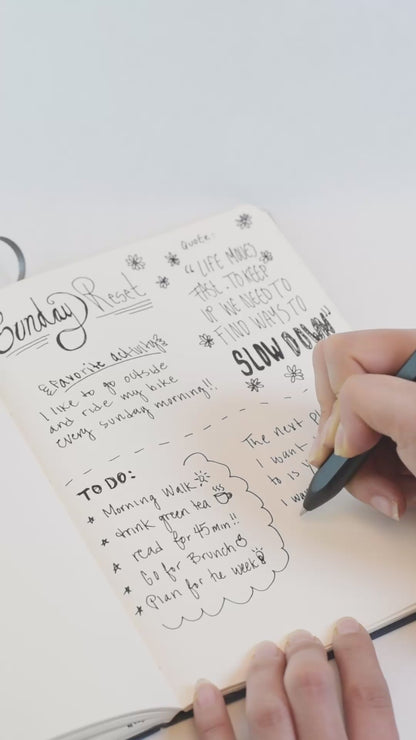 Sunday Reset
Favorite activity
I like to go outside
and ride my bike
every sunday morning!!
Quote:
"LIFE MOVES
FAST. TO KEEP
UP WE NEED TO
FIND WAYS TO
SLOW DOWN"
TO DO:
Morning Walk
drink green tea
read for 45 min!!
Go for Brunch
Plan for the week
The next
I want
to is
I wa